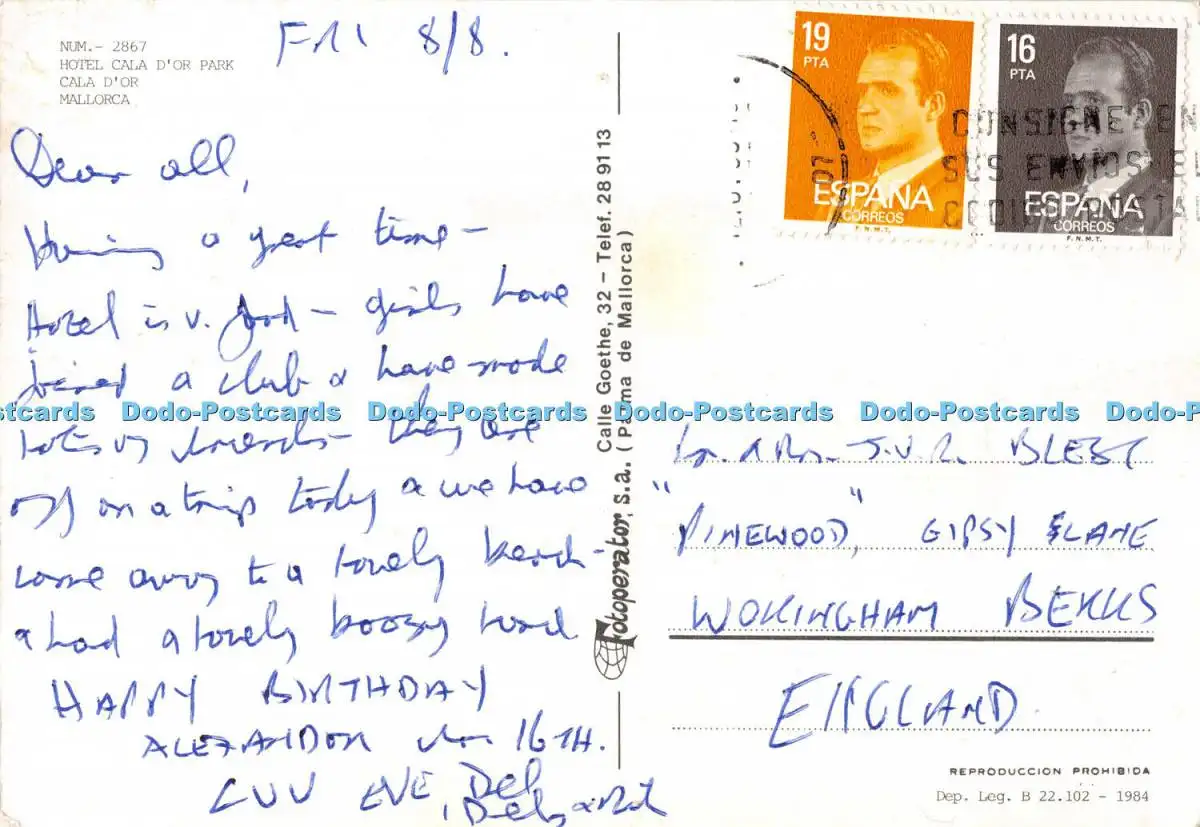 NUM.- 2867
HOTEL CALA D'OR PARK
CALA D'OR
MALLORCA
FRI 8/8.
Dear all,
Having a great time -
Hotel is v. good - girls have
joined a club & have made
lots of friends - they are
off on a trip today & we have
come away to a lovely beach -
& had a lovely boozy lunch
HAPPY BIRTHDAY
ALEXANDER for 16TH.
LUV EVE, Del,
Fotoperator, s.a.
Calle Goethe, 32 - Telef. 28 91 13
(Palma de Mallorca)
19
PTA
ESPAÑA
CORREOS
F.N.M.T.
16
PTA
ESPAÑA
CORREOS
F.N.M.T.
CONSIGNE EN
SUS ENVIOS EL
Dodo-Postcards Dodo-Postcards Dodo-Postcards Dodo-Postcards
J.V.R. BLEST
"PINEWOOD", GIPSY LANE
WOKINGHAM BERKS
ENGLAND
REPRODUCCION PROHIBIDA
Dep. Leg. B 22.102 - 1984